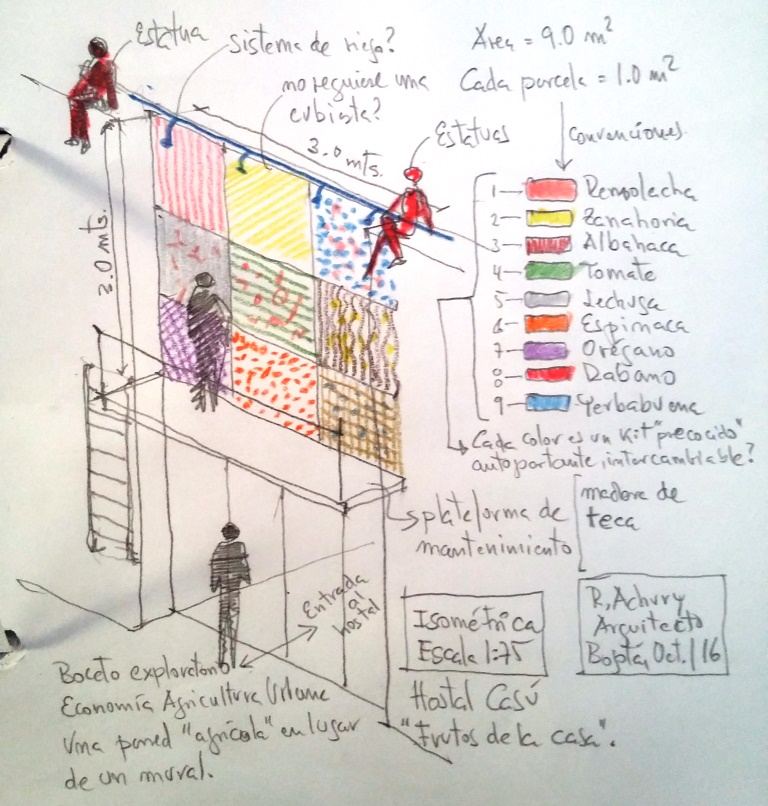 Estatua
sistema de riego?
no requiere una
cubierta?
3.0 mts.
Estatuas
3.0 mts.
Área = 9.0 m²
Cada parcela = 1.0 m²
convenciones
1- Remolacha
2- Zanahoria
3- Albahaca
4- Tomate
5- Lechuga
6- Espinaca
7- Orégano
8- Rabano
9- Yerbabuena
Cada color es un kit "precocido"
autoportante, intercambiable?
plataforma de
mantenimiento
madera de
teca
Entrada
al
hostal
Isométrica
Escala 1:75
R, Achury
Arquitecto
Bogotá, Oct. / 16
Boceto exploratorio
Economía Agricultura Urbana
Una pared "agrícola" en lugar
de un mural.
Hostal Casú
"Frutos de la casa".